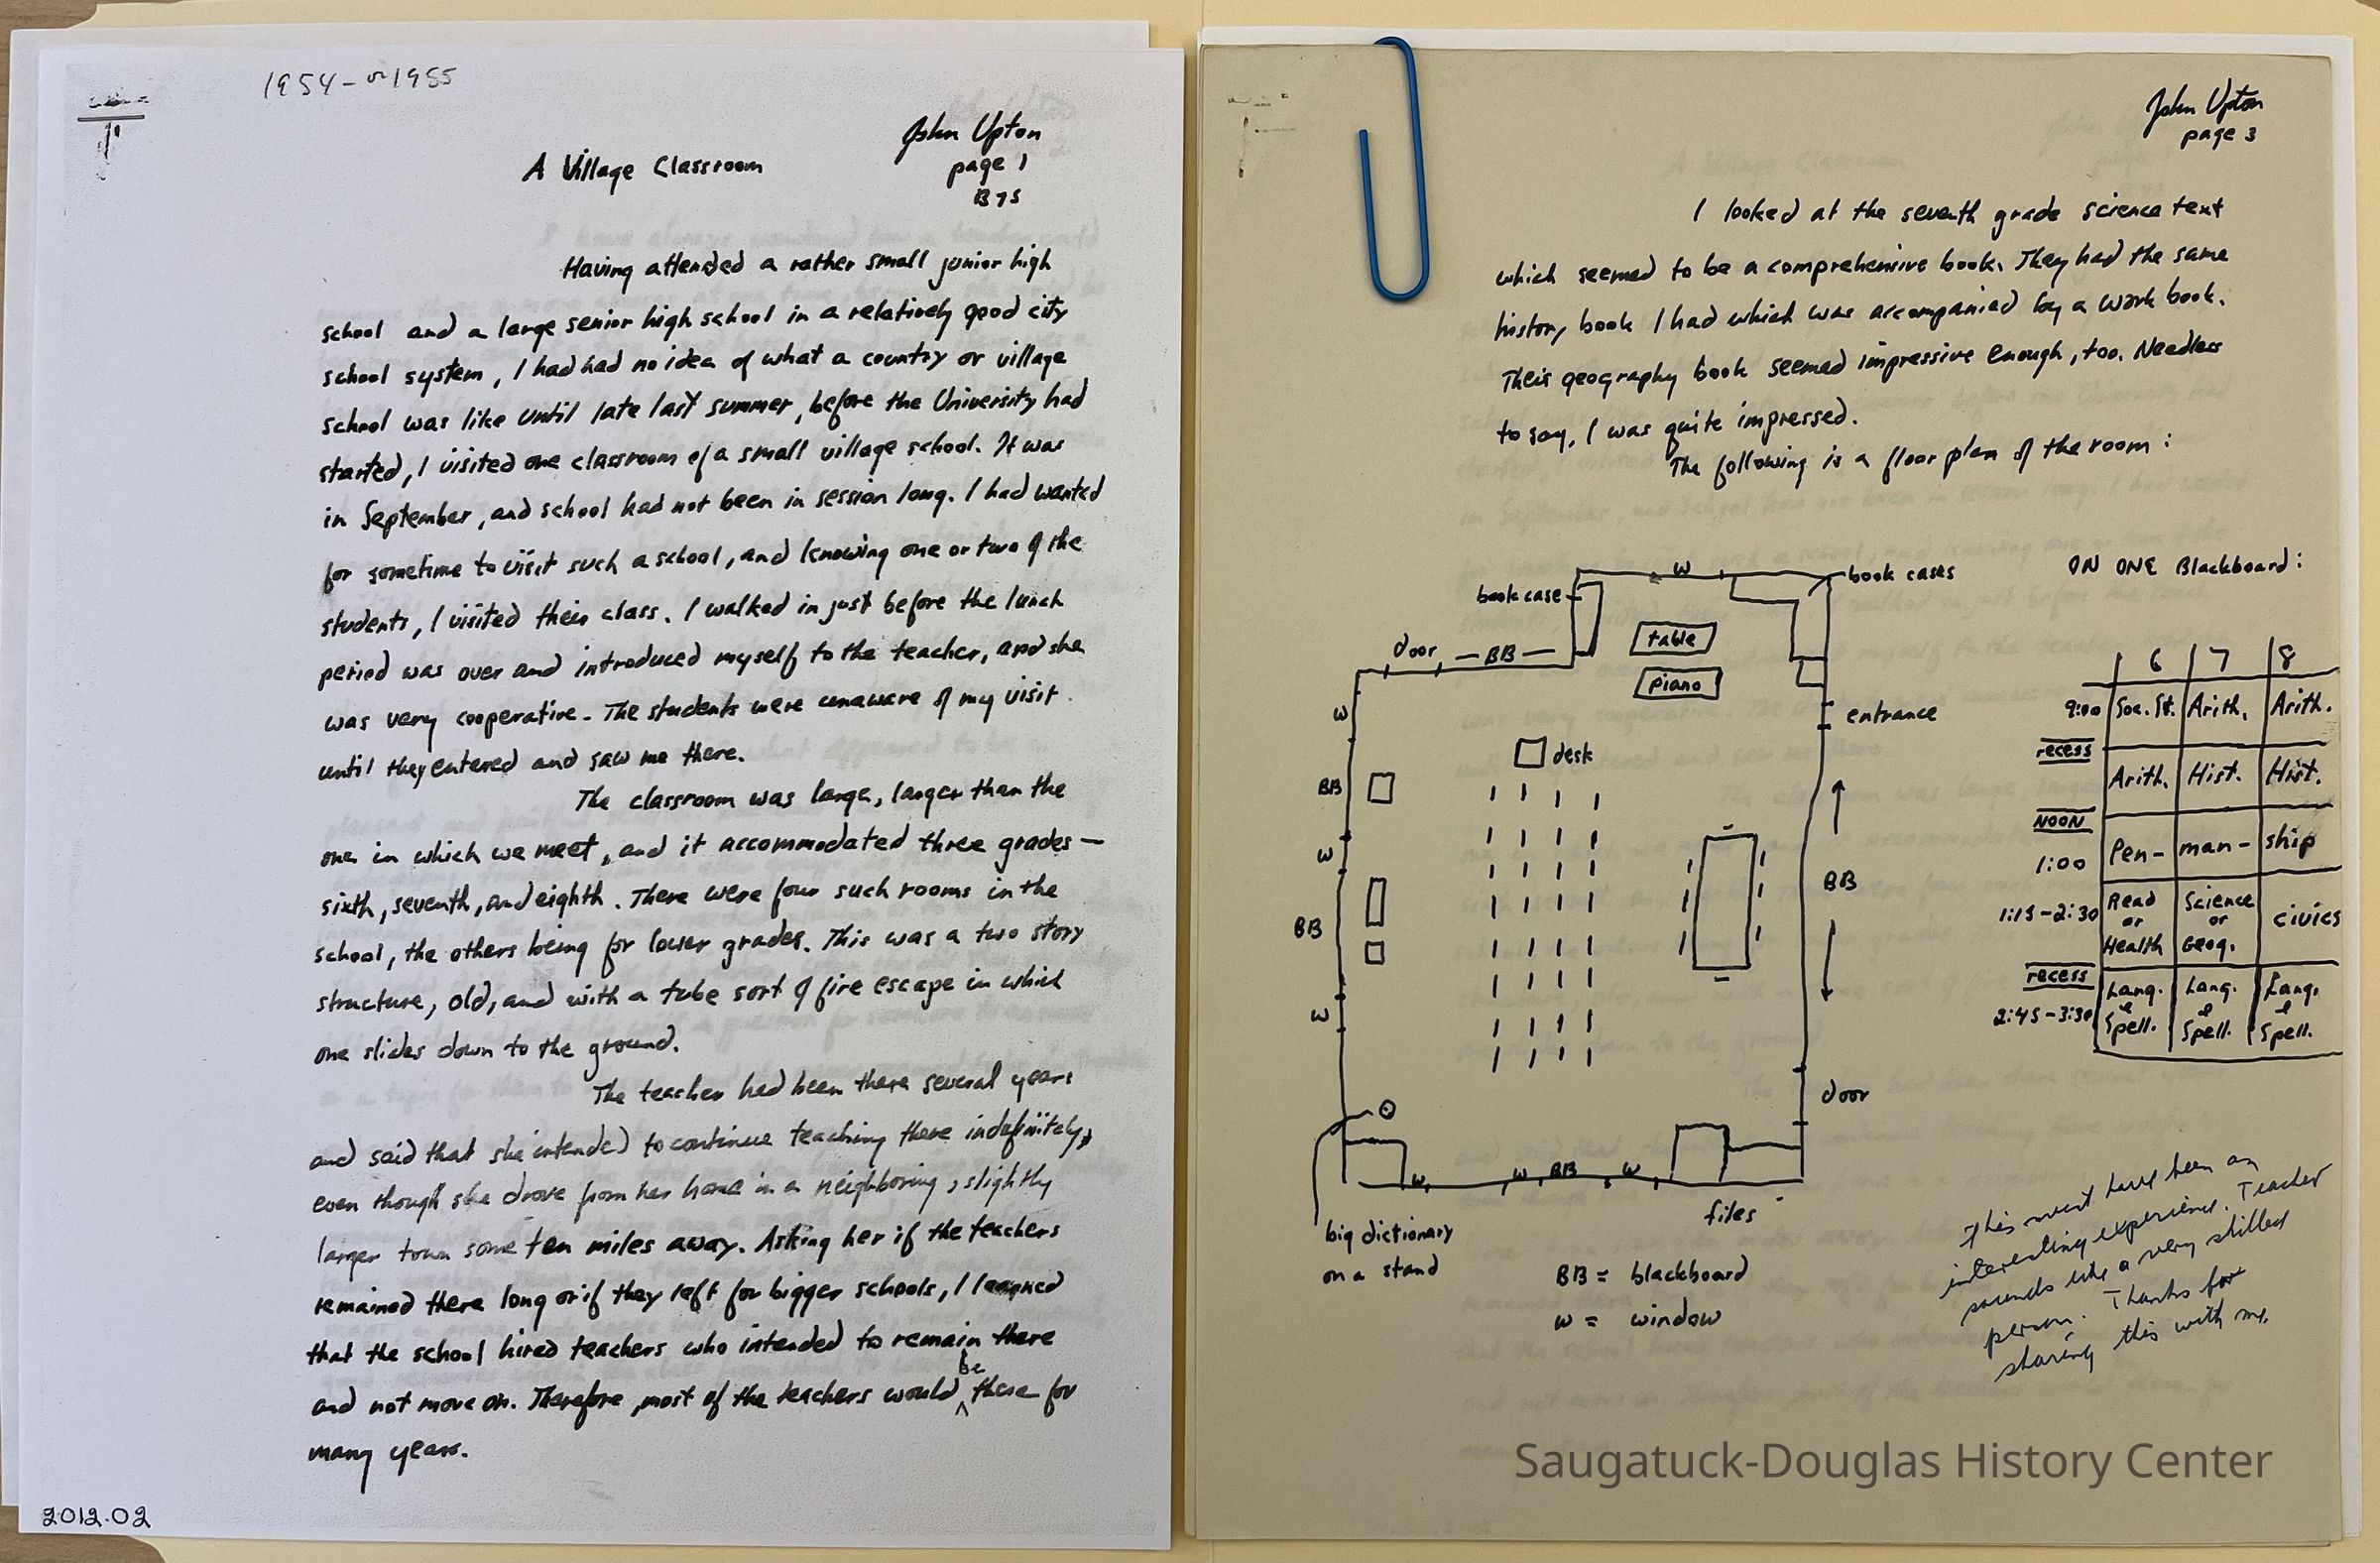 1954 - or 1955
John Upton
page 1
B75
A Village Classroom
Having attended a rather small junior high
school and a large senior high school in a relatively good city
school system, I had had no idea of what a country or village
school was like until late last summer, before the University had
started, I visited one classroom of a small village school. It was
in September, and school had not been in session long. I had wanted
for sometime to visit such a school, and knowing one or two of the
students, I visited their class. I walked in just before the lunch
period was over and introduced myself to the teacher, and she
was very cooperative. The students were unaware of my visit
until they entered and saw me there.
The classroom was large, larger than the
one in which we meet, and it accommodated three grades —
sixth, seventh, and eighth. There were four such rooms in the
school, the others being for lower grades. This was a two story
structure, old, and with a tube sort of fire escape in which
one slides down to the ground.
The teacher had been there several years
and said that she intended to continue teaching there indefinitely,
even though she drove from her home in a neighboring, slightly
larger town some ten miles away. Asking her if the teachers
remained there long or if they left for bigger schools, I learned
that the school hired teachers who intended to remain there
and not move on. Therefore, most of the teachers would be there for
many years.
2012.02
John Upton
page 3
I looked at the seventh grade science text
which seemed to be a comprehensive book. They had the same
history book I had which was accompanied by a work book.
Their geography book seemed impressive enough, too. Needless
to say, I was quite impressed.
The following is a floor plan of the room:
W
book case
book cases
door
— BB —
table
piano
W
entrance
desk
BB
W
BB
BB
W
door
W
W
BB
W
files
big dictionary
on a stand
BB = blackboard
W = window
ON ONE Blackboard:
6 7 8
9:00 Soc. St. Arith. Arith.
recess
Arith. Hist. Hist.
NOON
1:00 Pen- man- ship
1:15-2:30 Read or Health Science or Geog. civics
recess
2:45-3:30 Lang. & Spell. Lang. & Spell. Lang. & Spell.
This must have been an
interesting experience. Teacher
sounds like a very skilled
person. Thanks for
sharing this with me.
Saugatuck-Douglas History Center